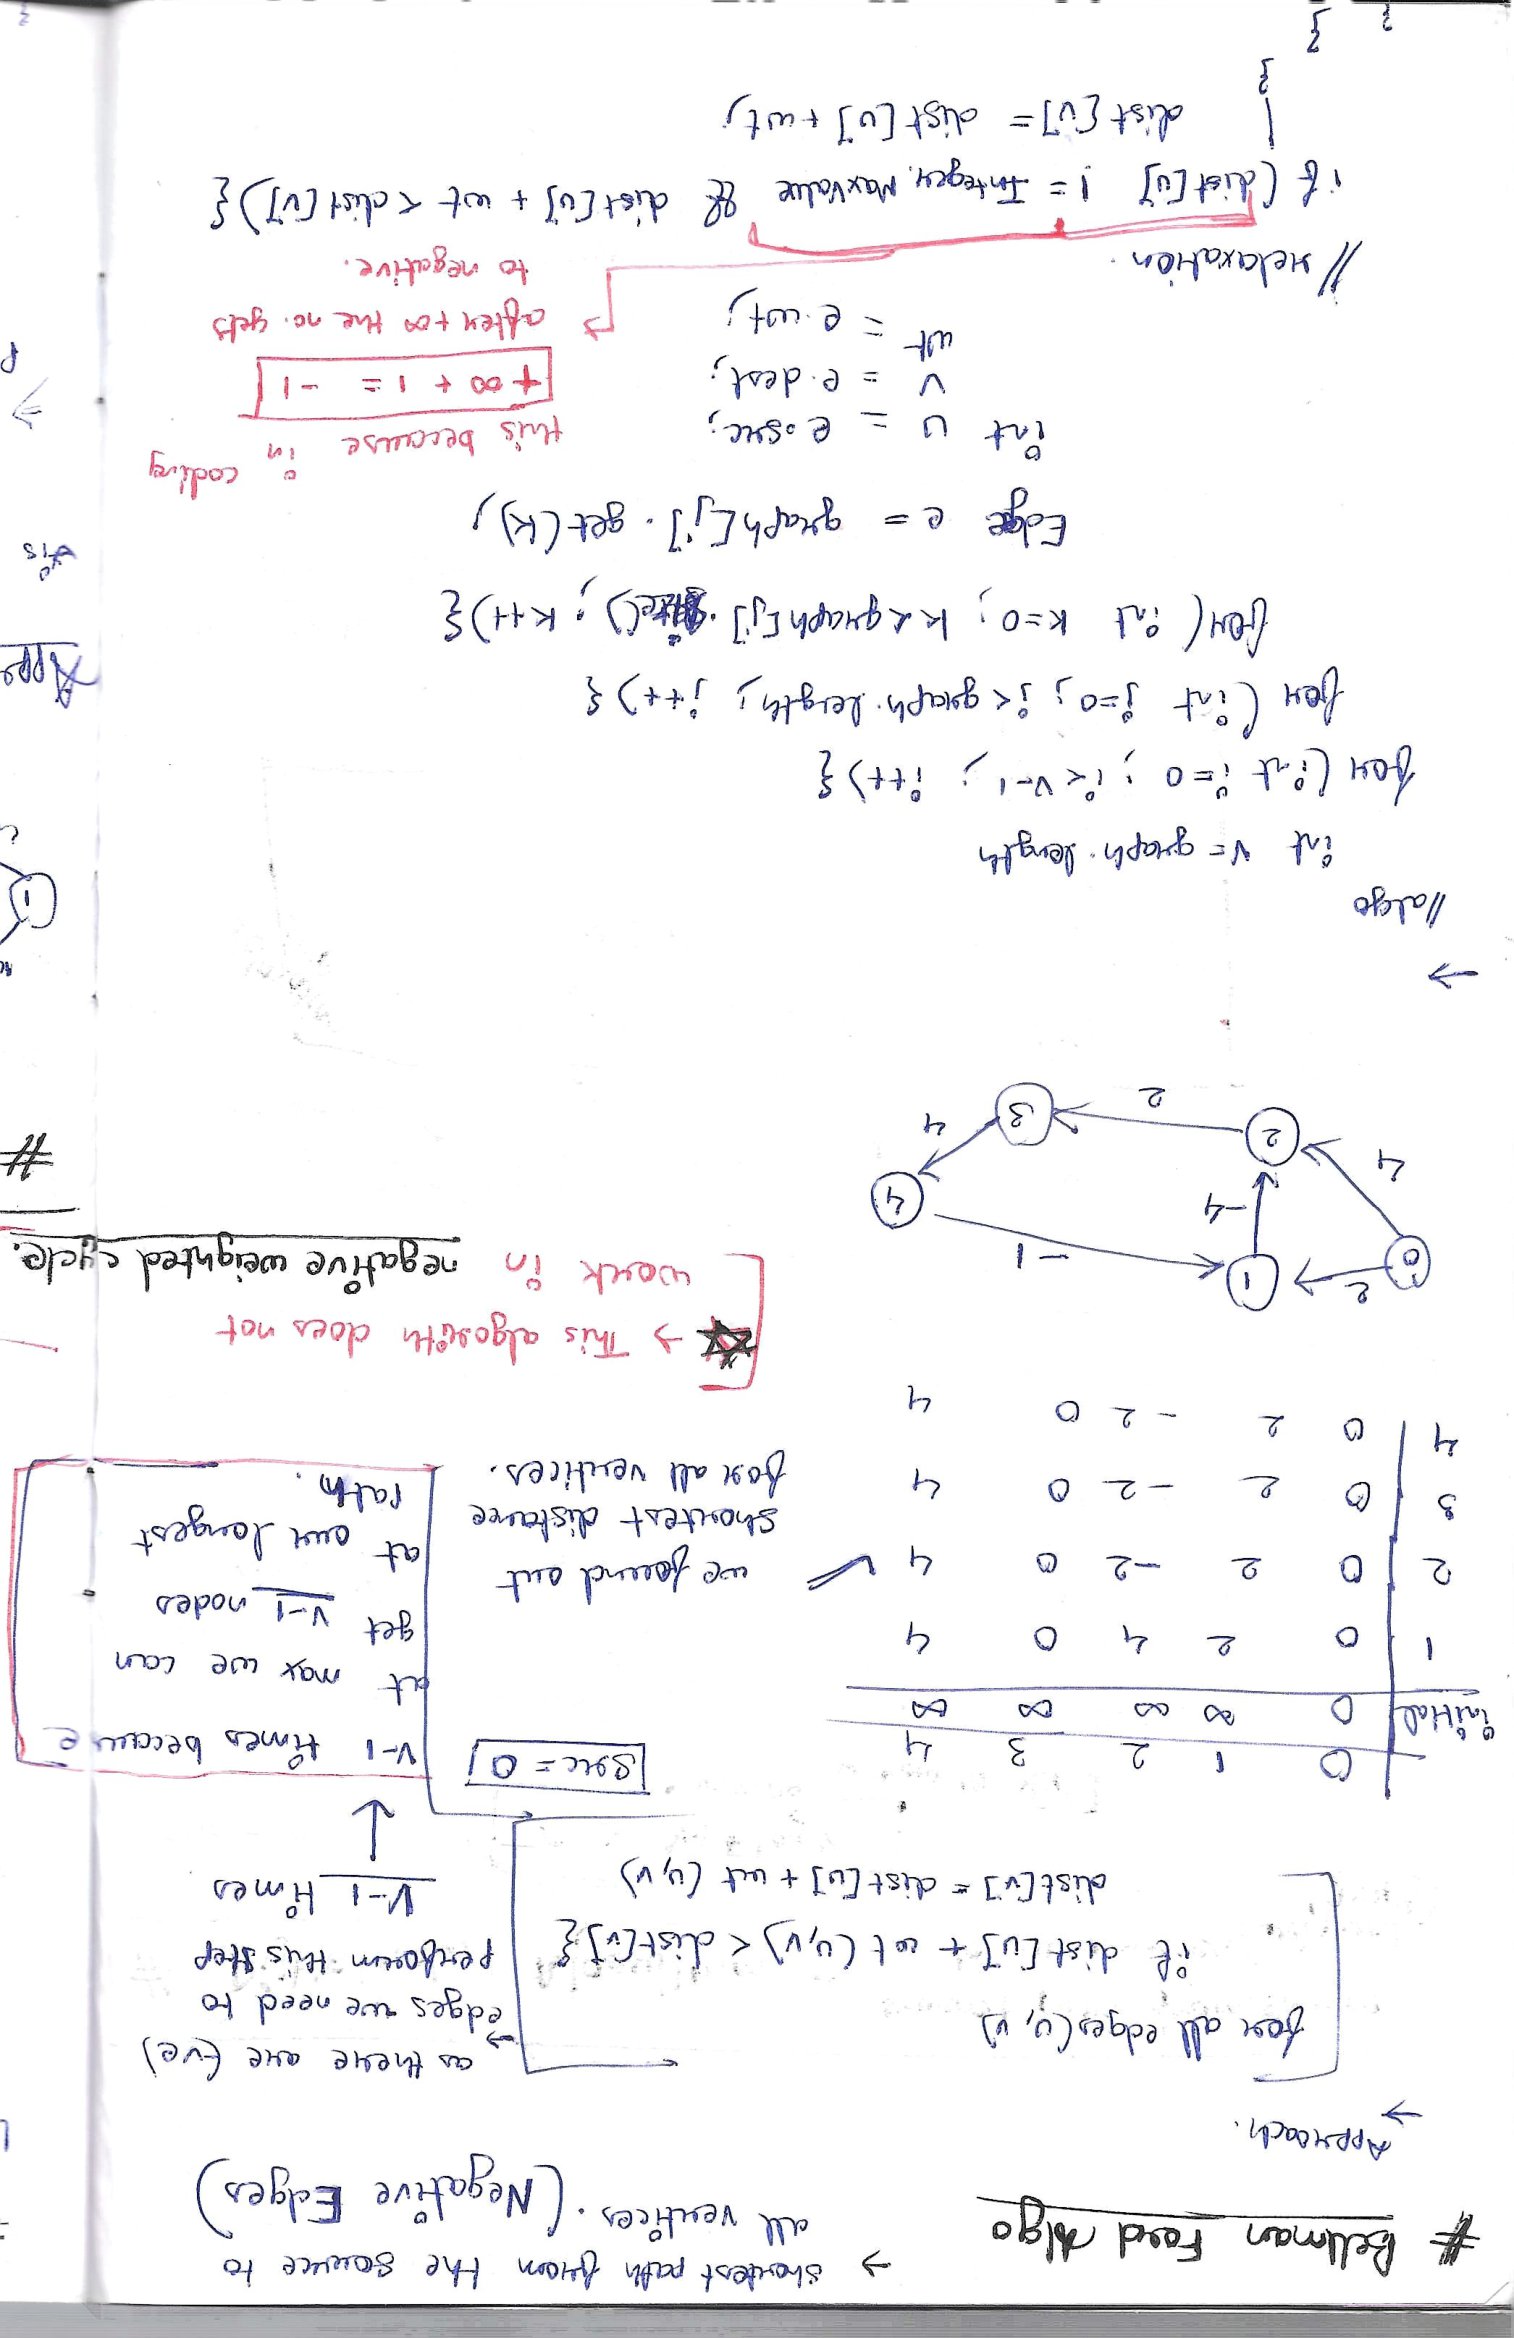 # Bellman Ford Algo
→ shortest path from the source to
all vertices. (Negative Edges)
→ Approach.
for all edges (u, v)
if dist[u] + wt (u,v) < dist[v] {
dist[v] = dist[u] + wt (u,v)
as there are (ve)
edges we need to
perform this step
V-1 times
V-1 times because
at max we can
get V-1 nodes
at our longest
path.
src = 0
0 1 2 3 4
initial 0 ∞ ∞ ∞ ∞
1 0 2 4 0 4
2 0 2 -2 0 4
3 0 2 -2 0 4
4 0 2 -2 0 4
we found out
shortest distance
for all vertices.
→ This algorith does not
work in negative weighted cycle.
0 2 1
4 -4 -1
2 2 3 4 4
→
//algo
int v = graph.length
for (int i=0; i<v-1; i++) {
for (int j=0; j<graph.length; j++) {
for (int k=0; k<graph[j].size(); k++) {
Edge e = graph[j].get(k);
int u = e.src;
v = e.dest;
wt = e.wt;
this because in coding
+∞ + 1 = -1
after +∞ the no. gets
to negative.
//relaxation.
if (dist[u] != Integer.MaxValue && dist[u] + wt < dist[v]) {
dist[v] = dist[u] + wt;
}
}
}
#
1
Appro